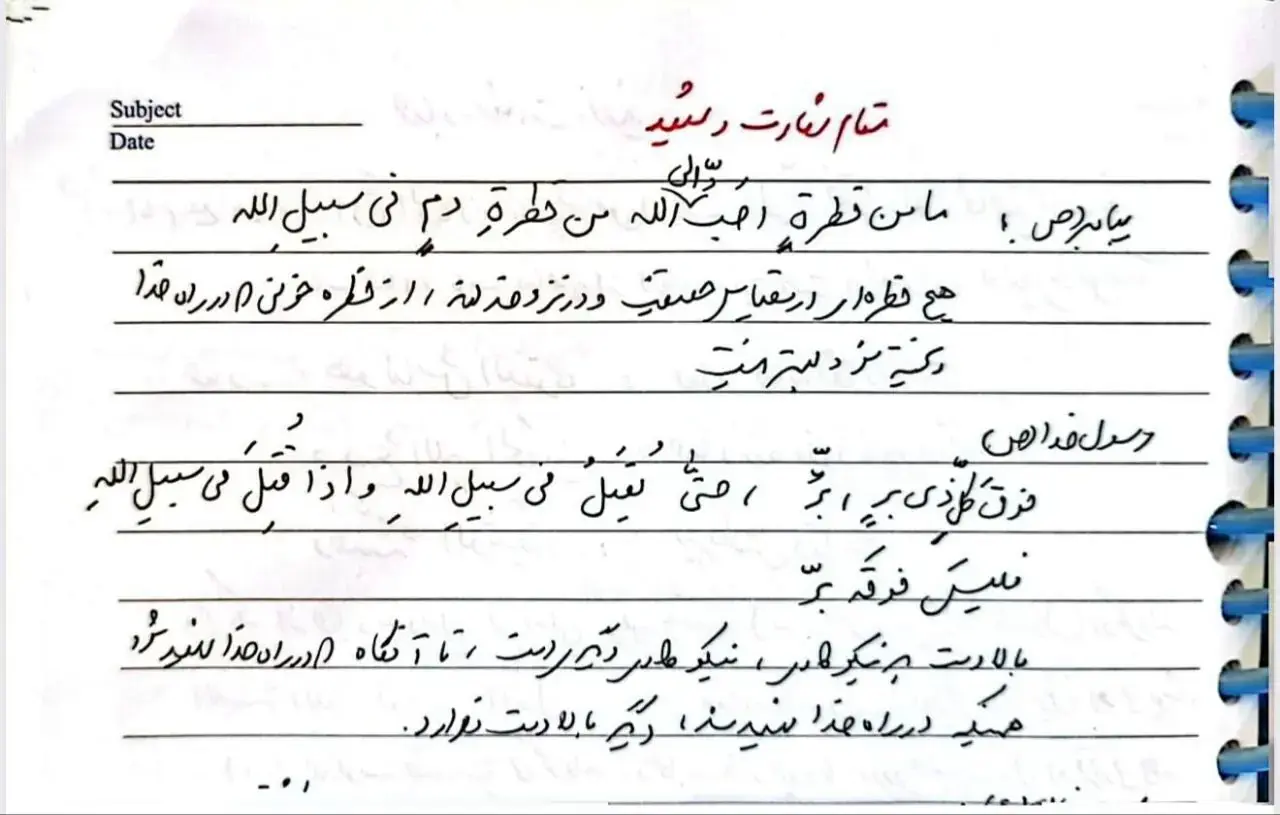 Subject
Date
مقام شهادت و شهید
پیامبر(ص): ما من قطرةٍ أحَبَّ إلی الله من قطرةِ دمٍ فی سبیلِ اللهِ
هیچ قطره‌ای در مقیاس حقیقت و در نزد خدا، از قطره خونی که در راه خدا
ریخته شود بهتر نیست
رسول خدا (ص)
فوقَ کلِّ ذِی برٍ، برٌّ، حتّیٰ یُقتَلُ فی سبیلِ اللهِ و اذا قُتِلَ فی سبیلِ اللهِ
فلیسَ فوقَه برّ
بالادست هر نیکوکاری، نیکوکار دیگری است، تا آنگاه که در راه خدا شهید شود
همینکه در راه خدا شهید شد، دیگر بالادست ندارد.